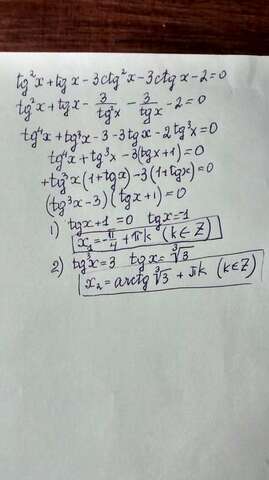 tg²x + tgx - 3ctg²x - 3ctgx - 2 = 0
tg²x + tgx - 3/tg²x - 3/tgx - 2 = 0
tg⁴x + tg³x - 3 - 3tgx - 2tg³x = 0
tg⁴x + tg³x - 3(tgx + 1) = 0
+tg³x (1 + tgx) - 3 (1 + tgx) = 0
(tg³x - 3) (tgx + 1) = 0
1) tgx + 1 = 0 tgx = -1
x₁ = -π/4 + πk (k ∈ Z)
2) tg³x = 3 tgx = ∛3
x₂ = arctg ∛3 + πk (k ∈ Z)